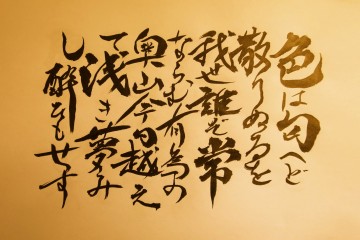 色は匂へど
散りぬるを
我世誰そ常
ならむ有為の
奥山今日越え
て浅き夢み
し酔ひもせす